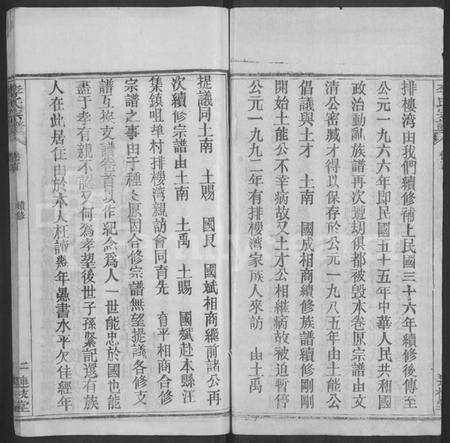 排樓湾由我們續修補上民國三十六年續修後傳至
公元一九六六年即民國五十五年中華人民共和國
政治動亂族譜再次遭刼俱都被毁本卷原宗譜由文
清公密藏才得以保存於公元一九八五年由土能公
倡議與土才 土南 國成相商續修族譜續修剛剛
開始土能公不幸病故又土才公相繼病故被迫暫停
公元一九九二年有排樓湾家族人來訪 由土禹
提議同土南 土賜 國良 國斌相商繼前諸公再
次續修宗譜由土南 土禹 土賜 國斌赴本縣汪
集鎮咀单村排樓湾親訪會同育先 育平相商合修
宗譜之事由于種種原因合修宗譜無望提議各修支
譜互換支譜卷首以作紀念為人一世能忠於國也能
盡于孝有親不認又何為孝望後世子孫緊記還有族
人在此居住由於本人枉讀幾年愚書水平欠佳經年
李氏宗譜 卷首 續修 二 連枝堂